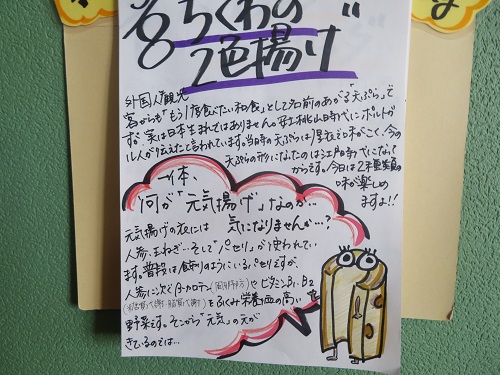 ちくわの
2色揚げ
外国人観光
客からも「もう1度食べたい和食」として名前のあがる「天ぷら」で
す。実は日本生まれではありません。安土桃山時代にポルトガ
ル人が伝えたと言われています。当時の天ぷらは
味がこく、今の
天ぷらの形になったのは江戸時代になって
からです。今日は2種類の
味が楽しめ
ますよ!!
一体、
何が「元気揚げ」なのか…
気になりませんか…?
元気揚げの衣には
人参、玉ねぎ、そして"パセリ"が使われてい
ます。普段は飾りのようにいるパセリですが、
人参に次ぐβ-カロテンやビタミンB1、B2
をふくみ栄養価の高い
野菜です。そこから「元気」の元が
きているのでは…